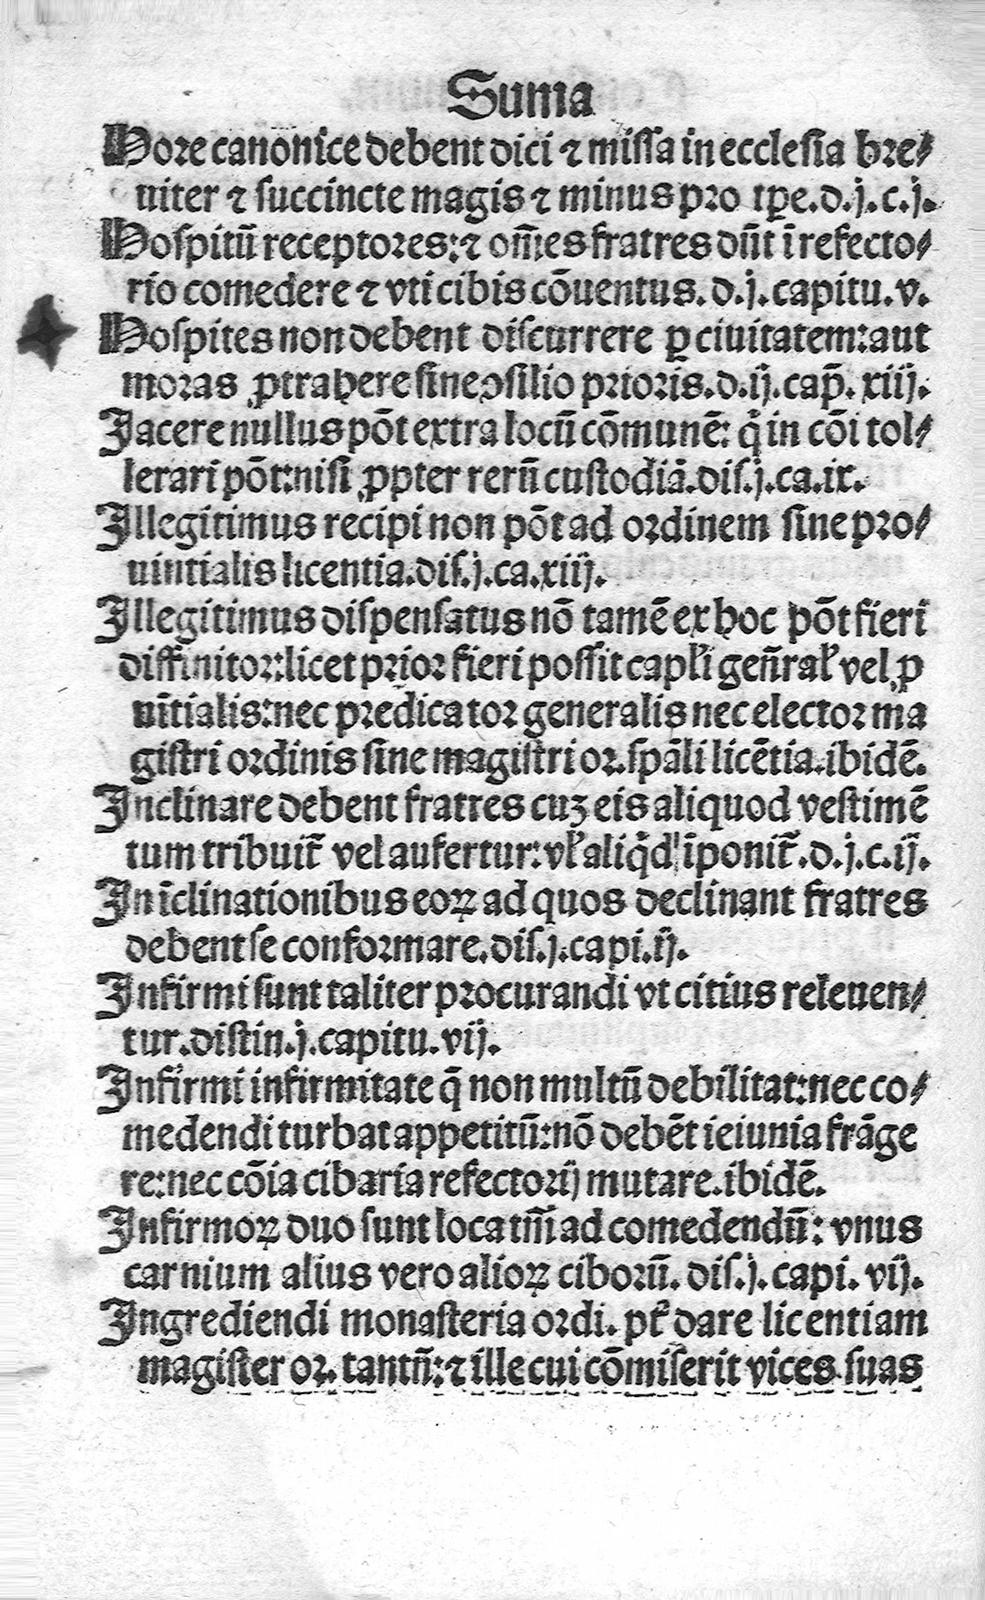 Suma
Hore canonice debent dici ⁊ missa in ecclesia bre⸗
uiter ⁊ succincte magis ⁊ minus pro tꝑe.d.j.c.j.
Hospitū receptores:⁊ om̄es fratres dn̄t ī refecto⸗
rio comedere ⁊ vti cibis cōuentus.d.j.capitu.v.
Hospites non debent discurrere ꝑ ciuitatem:aut
moras ꝓtrahere sine ↄsilio prioris.d.ij.cap̄.xiij.
Jacere nullus pōt extra locū cōmunē: q̄ in cōi tol⸗
lerari pōt:nisi ꝓpter rerū custodiā.dis.j.ca.ix.
Illegitimus recipi non pōt ad ordinem sine pro⸗
uintialis licentia.dis.j.ca.xiij.
Illegitimus dispensatus nō tamē ex hoc pōt fieri
diffinitor:licet prior fieri possit capl̓i gen̄ral̓ vel ꝓ
uītialis:nec predicator generalis nec elector ma
gistri ordinis sine magistri or.spāli licētia.ibidē.
Inclinare debent fratres cuꝫ eis aliquod vestimē
tum tribuit̄ vel aufertur:vl̓ aliq̇d īponit̄.d.j.c.ij.
In īclinationibus eoꝝ ad quos declinant fratres
debent se conformare.dis.j.capi.ij.
Infirmi sunt taliter procurandi vt citius releuen⸗
tur.distin.j.capitu.vij.
Infirmi infirmitate q̄ non multū debilitat:nec co⸗
medendi turbat appetitū:nō debēt ieiunia frāge
re:nec cōia cibaria refectorij mutare.ibidē.
Infirmoꝝ duo sunt loca tm̄ ad comedendū: vnus
carnium alius vero alioꝝ ciborū. dis.j.capi.vij.
Ingrediendi monasteria ordi. pt̓ dare licentiam
magister or. tantū:⁊ ille cui cōmiserit vices suas